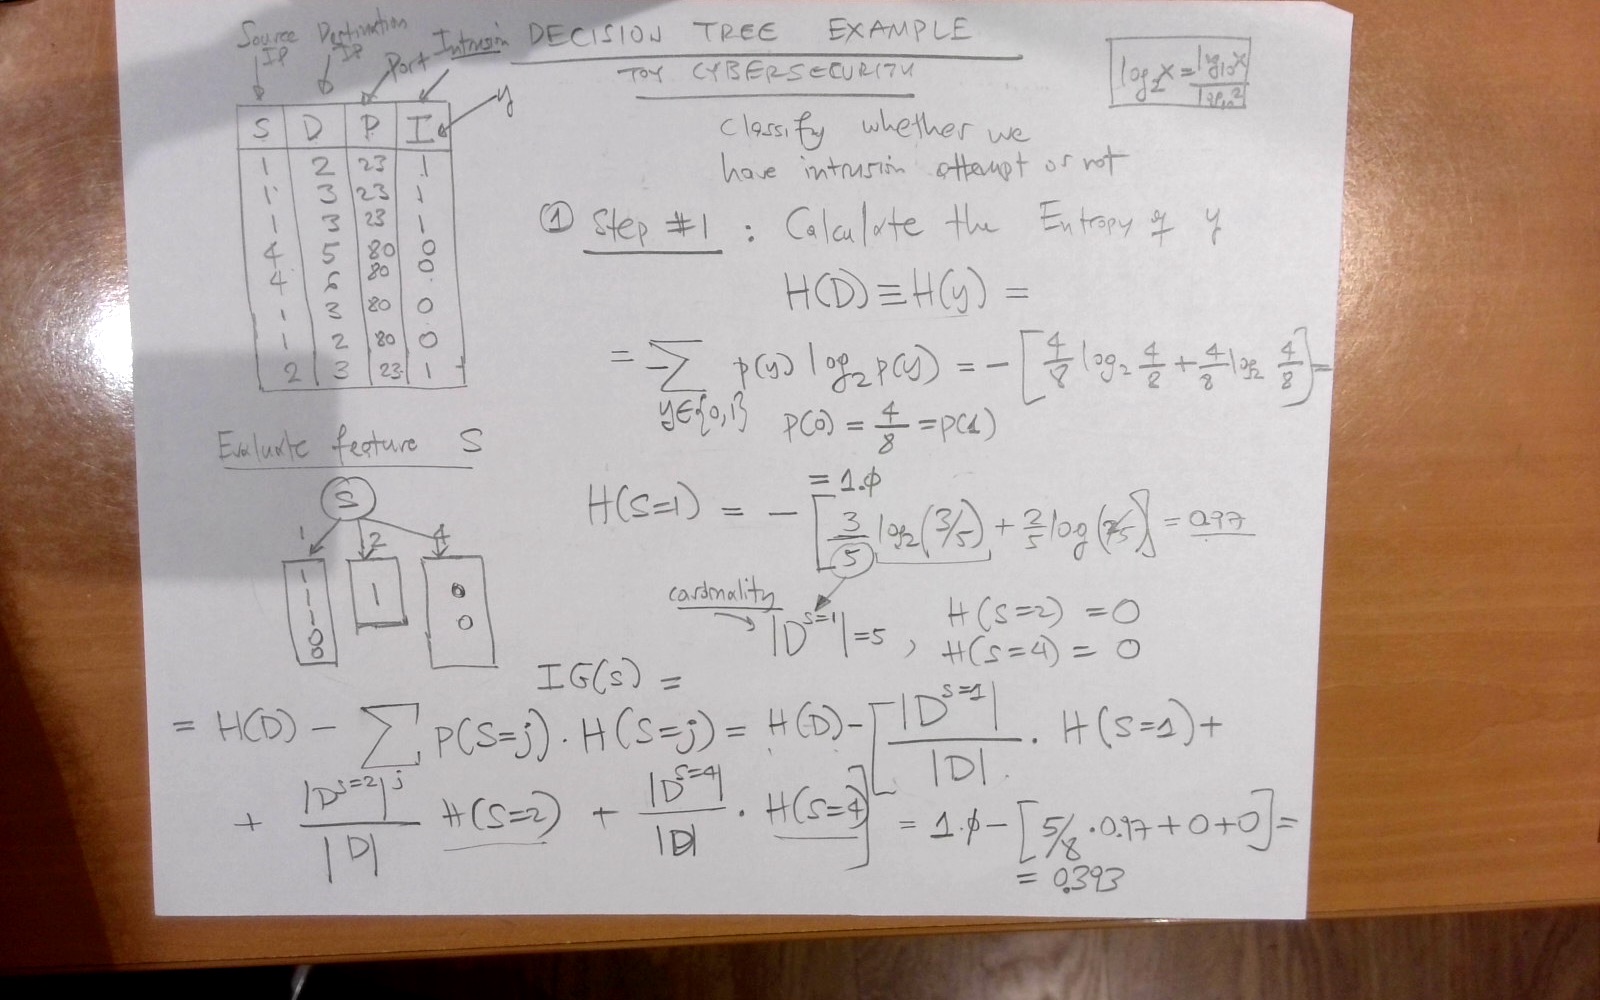 DECISION TREE EXAMPLE
TOY CYBERSECURITY
Source IP
Destination IP
Port
Intrusion
y
log₂x = log₁₀x / log₁₀2
S D P I
1 2 23 1
1 3 23 1
1 3 23 1
4 5 80 0
4 6 80 0
1 3 80 0
1 2 80 0
2 3 23 1
Classify whether we
have intrusion attempt or not
① Step #1 : Calculate the Entropy of y
H(D) ≡ H(y) =
= -∑ y∈{0,1} p(y) log₂ p(y) = - [4/8 log₂ 4/8 + 4/8 log₂ 4/8] =
P(0) = 4/8 = P(1)
= 1.φ
Evaluate feature S
S
1 2 4
1 1 0
1 0
1
0
0
H(S=1) = - [3/5 log₂(3/5) + 2/5 log(2/5)] = 0.97
cardinality
|D^{S=1}| = 5 , H(S=2) = 0
H(S=4) = 0
IG(S) =
= H(D) - ∑_j P(S=j) · H(S=j) = H(D) - [|D^{S=1}|/|D| · H(S=1) +
+ |D^{S=2}|/|D| H(S=2) + |D^{S=4}|/|D| · H(S=4)] = 1.φ - [5/8 · 0.97 + 0 + 0] =
= 0.393